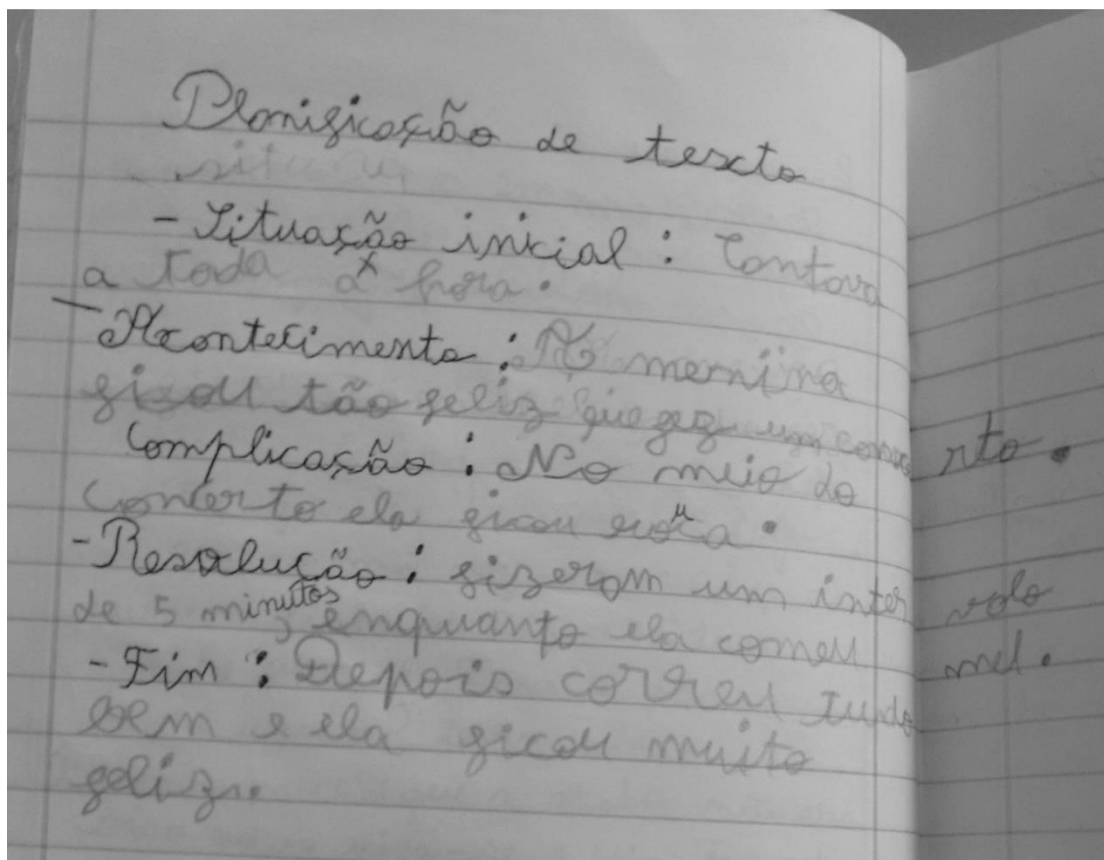 Planificação de texto
- Situação inicial : Cantava
a toda a hora.
- Acontecimento : A menina
ficou tão feliz que fez um concerto.
Complicação : No meio do
concerto ela ficou rouca.
- Resolução : fizeram um intervalo
de 5 minutos, enquanto ela comeu mel.
- Fim : Depois correu tudo
bem e ela ficou muito
feliz.